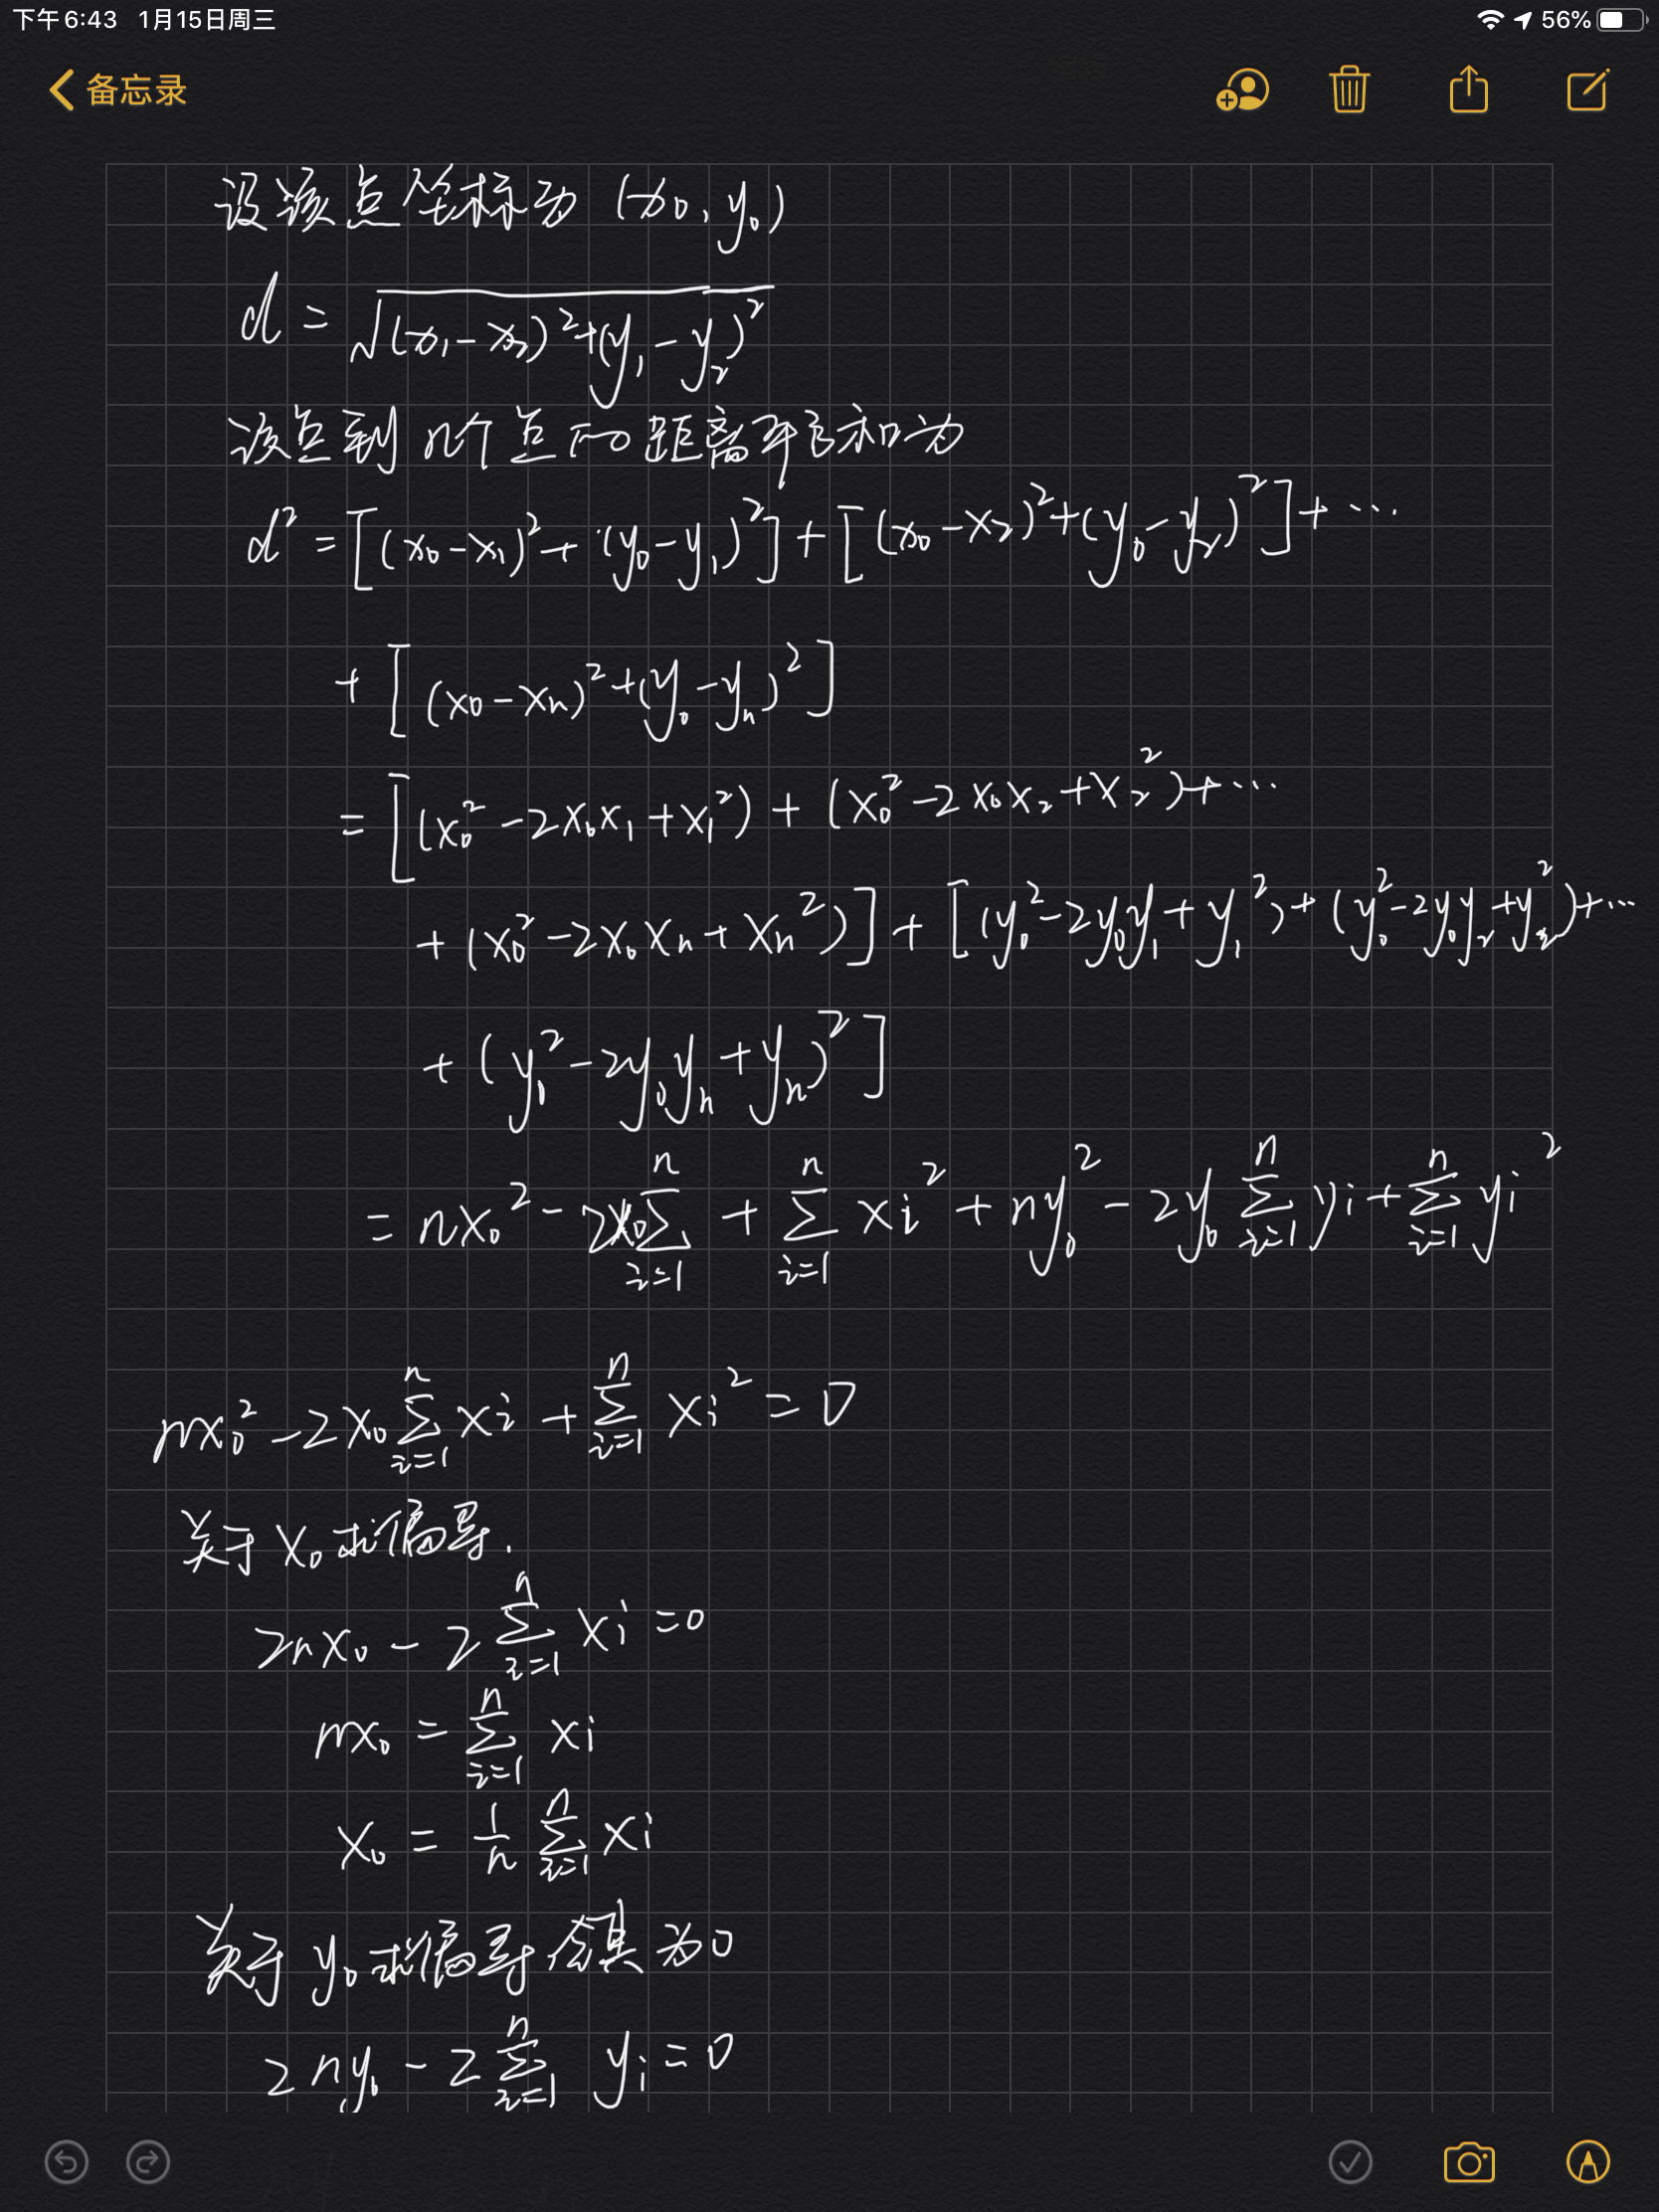 下午6:43 1月15日周三 56%
备忘录
设该点坐标为 (x₀, y₀)
d = √((x₁-x₂)²+(y₁-y₂)²)
该点到n个点的距离平方和为
d² = [(x₀-x₁)²+(y₀-y₁)²]+[(x₀-x₂)²+(y₀-y₂)²]+…
+ [(x₀-xₙ)²+(y₀-yₙ)²]
= [(x₀²-2x₀x₁+x₁²)+(x₀²-2x₀x₂+x₂²)+…
+(x₀²-2x₀xₙ+xₙ²)]+[(y₀²-2y₀y₁+y₁²)+(y₀²-2y₀y₂+y₂²)+…
+(y₀²-2y₀yₙ+yₙ)²]
= nx₀²-2x₀∑ⁿᵢ₌₁+∑ⁿᵢ₌₁ xi²+ny₀²-2y₀∑ⁿᵢ₌₁ yi+∑ⁿᵢ₌₁ yi²
nx₀²-2x₀∑ⁿᵢ₌₁ xi+∑ⁿᵢ₌₁ xi²=0
关于x₀求偏导.
2nx₀-2∑ⁿᵢ₌₁ xi=0
nx₀=∑ⁿᵢ₌₁ xi
x₀=1/n ∑ⁿᵢ₌₁ xi
关于y₀求偏导令其为0
2ny₀-2∑ⁿᵢ₌₁ yi=0